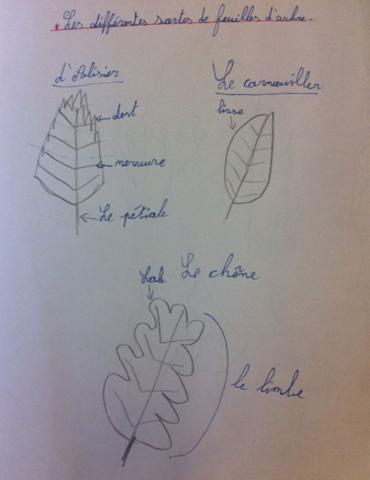 * Les différentes sortes de feuilles d'arbre.
d'Alisier
Le cornouiller
lisse
dent
nervure
Le pétiole
Lob Le chêne
le limbe